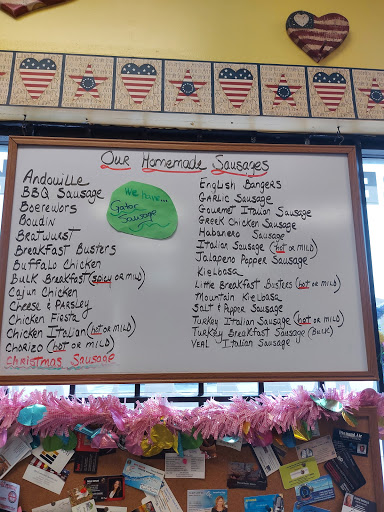 Our Homemade Sausages
Andouille
BBQ Sausage
Boerewors
Boudin
Bratwurst
Breakfast Busters
Buffalo Chicken
Bulk Breakfast (spicy or mild)
Cajun Chicken
Cheese & Parsley
Chicken Fiesta
Chicken Italian (hot or mild)
Chorizo (hot or mild)
Christmas Sausage
We have...
Gator
Sausage
English Bangers
Garlic Sausage
Gourmet Italian Sausage
Greek Chicken Sausage
Habanero Sausage
Italian Sausage (hot or mild)
Jalapeno Popper Sausage
Kielbasa
Little Breakfast Busters (hot or mild)
Mountain Kielbasa
Salt & Pepper Sausage
Turkey Italian Sausage (hot or mild)
Turkey Breakfast Sausage (Bulk)
Veal Italian Sausage